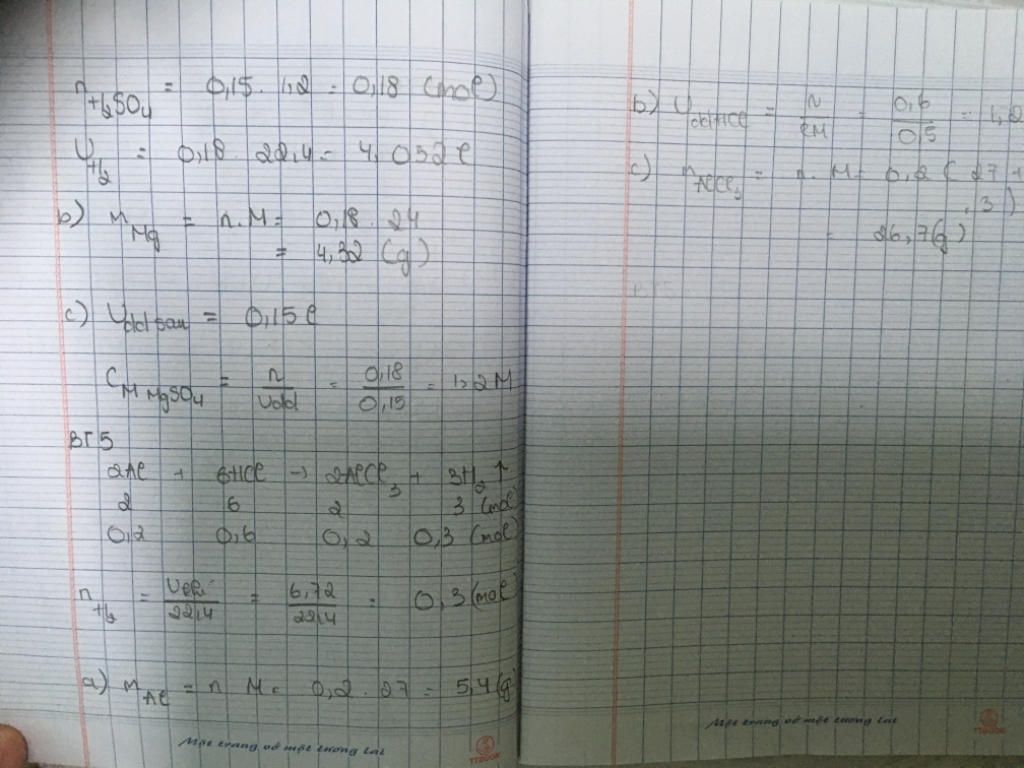 n H₂SO₄ = 0,15 . 1,2 = 0,18 (mol)
V H₂ = 0,18 . 22,4 = 4,032 l
b) m Mg = n.M = 0,18 . 24
= 4,32 (g)
c) V dd sau = 0,15 l
C M MgSO₄ = n / Vdd = 0,18 / 0,15 = 1,2 M
BT5
2Al + 6HCl → 2AlCl₃ + 3H₂ ↑
2 6 2 3 (mol)
0,2 0,6 0,2 0,3 (mol)
n H₂ = / 22,4 = 6,72 / 22,4 = 0,3 (mol
a) m Al = n M = 0,2 . 27 = 5,4 (g)
Một trang vở một tương lai
TTBOOK
b) V ddHCl = n / CM = 0,6 / 0,5 = 1,2
c) m AlCl₃ = n . M = 0,2 ( 27 +
. 3 )
= 26,7 (g)
Một trang vở một tương lai
TTBOOK